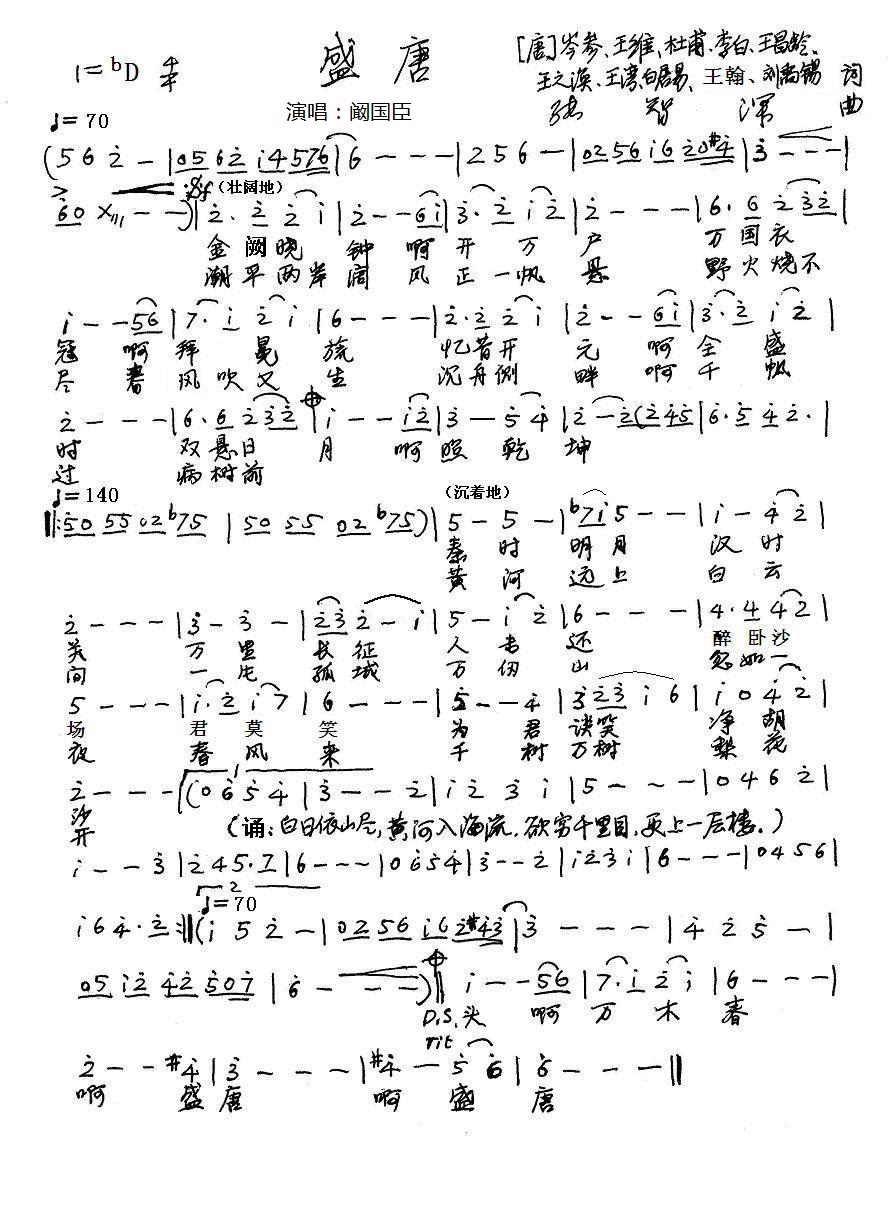 盛唐
1=ᵇD 4/4
[唐]岑参、王维、杜甫、李白、王昌龄、
王之涣、王湾、白居易、王翰、刘禹锡 词
张智深 曲
演唱：阚国臣
♩=70
(5 6 2̇ - | 0 5 6 2̇ i 4 5 7 6 | 6 - - - | 2 5 6 - | 0 2 5 6 i 6 2̇ 0 #4̇ | 3̇ - - - |
6 0 X - - ) | 2̇ · 2̇ 2̇ i | 2̇ - - 6 i | 3̇ · 2̇ i 2̇ | 2̇ - - - | 6 · 6 2̇ 3̇ 2̇ |
(壮阔地)
金阙晓钟啊开万户万国衣
潮平两岸阔风正一帆悬野火烧不
i - - 5 6 | 7 · i 2̇ i | 6 - - - | 2̇ · 2̇ 2̇ i | 2̇ - - 6 i | 3̇ · 2̇ i 2̇ |
冠啊拜冕旒忆昔开元啊全盛
尽春风吹又生沉舟侧畔啊千帆
2̇ - - - | 6 · 6 2̇ 3̇ 2̇ | i - - i 2̇ | 3̇ - 5̇ 4̇ | 2̇ - 2̇ ( 2̇ 4̇ 5̇ | 6̇ · 5̇ 4̇ 2̇ · |
时双悬日月啊照乾坤
过病树前
♩=140
(沉着地)
‖: 5 0 5 5 0 2 ᵇ7 5 | 5 0 5 5 0 2 ᵇ7 5 ) | 5 - 5 - | ᵇ7 i 5 - - | i - 4̇ 2̇ |
秦时明月汉时
黄河远上白云
2̇ - - - | 3̇ - 3̇ - | 2̇ 3̇ 2̇ - i | 5 - i 2̇ | 6 - - - | 4 · 4 4 2̇ |
关万里长征人未还醉卧沙
间一片孤城万仞山忽如一
5 - - - | i · 2̇ i 7 | 6 - - - | 5̇ - - 4̇ | 3̇ 2̇ 3̇ i 6 | i 0 4̇ 2̇ |
场君莫笑为君谈笑净胡
夜春风来千树万树梨花
2̇ - - - | ( 0 6̇ 5̇ 4̇ | 3̇ - - 2̇ | i 2̇ 3̇ i | 5 - - - | 0 4 6 2̇ |
沙
开
(诵：白日依山尽，黄河入海流，欲穷千里目，更上一层楼。)
i - - 3̇ | 2̇ 4 5 · 7 | 6 - - - | 0 6̇ 5̇ 4̇ | 3̇ - - 2̇ | i 2̇ 3̇ i | 6 - - - | 0 4 5 6 |
♩=70
i 6 4̇ · 2̇ :‖ ( i 5 2̇ - | 0 2 5 6 i 6 2̇ #4̇ 3̇ | 3̇ - - - | 4̇ 2̇ 5̇ - |
0 5 i 2̇ 4̇ 2̇ 5̇ 0 7̇ | 6̇ - - - ) ‖ i - - 5 6 | 7 · i 2̇ i | 6 - - - |
D.S.头 啊万木春
rit
2̇ - - #4̇ | 3̇ - - - | #4̇ - 5̇ 6̇ | 6̇ - - - ‖
啊盛唐啊盛唐